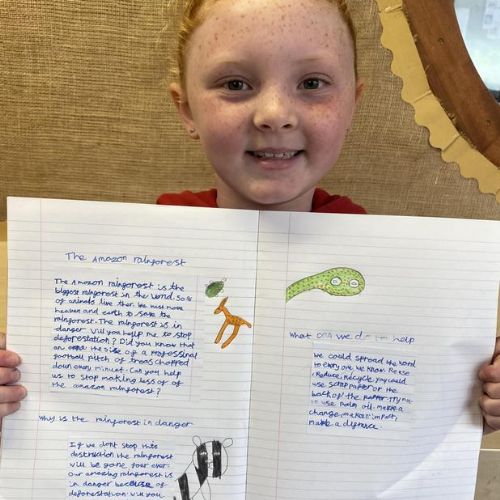 The Amazon rainforest
The Amazon rainforest is the
biggest rainforest in the world. So ls
of animals live ther. We must move
heaven and earth to save the
rainforest. The rainforest is in
danger will you hellp me to stop
deforestation? Did you know that
an the size of a proffessinal
football pitch of treas chopped
down every minuet. Can you help
us to stop making loss of of
the amazon rainforest?
Why is the rainforest in danger
If we dont stop this
destruction the rainforest
will be gone four ever.
Our amazing rainforest is
in danger because of
deforestation. will you
What can we do to help
We could spread the word
to every one we know. Re use
Reduce, Recycle. you could
use scrap paper or the
back of the paper. Try not
to use palm oil. make a
change, make impact,
make a difrence.